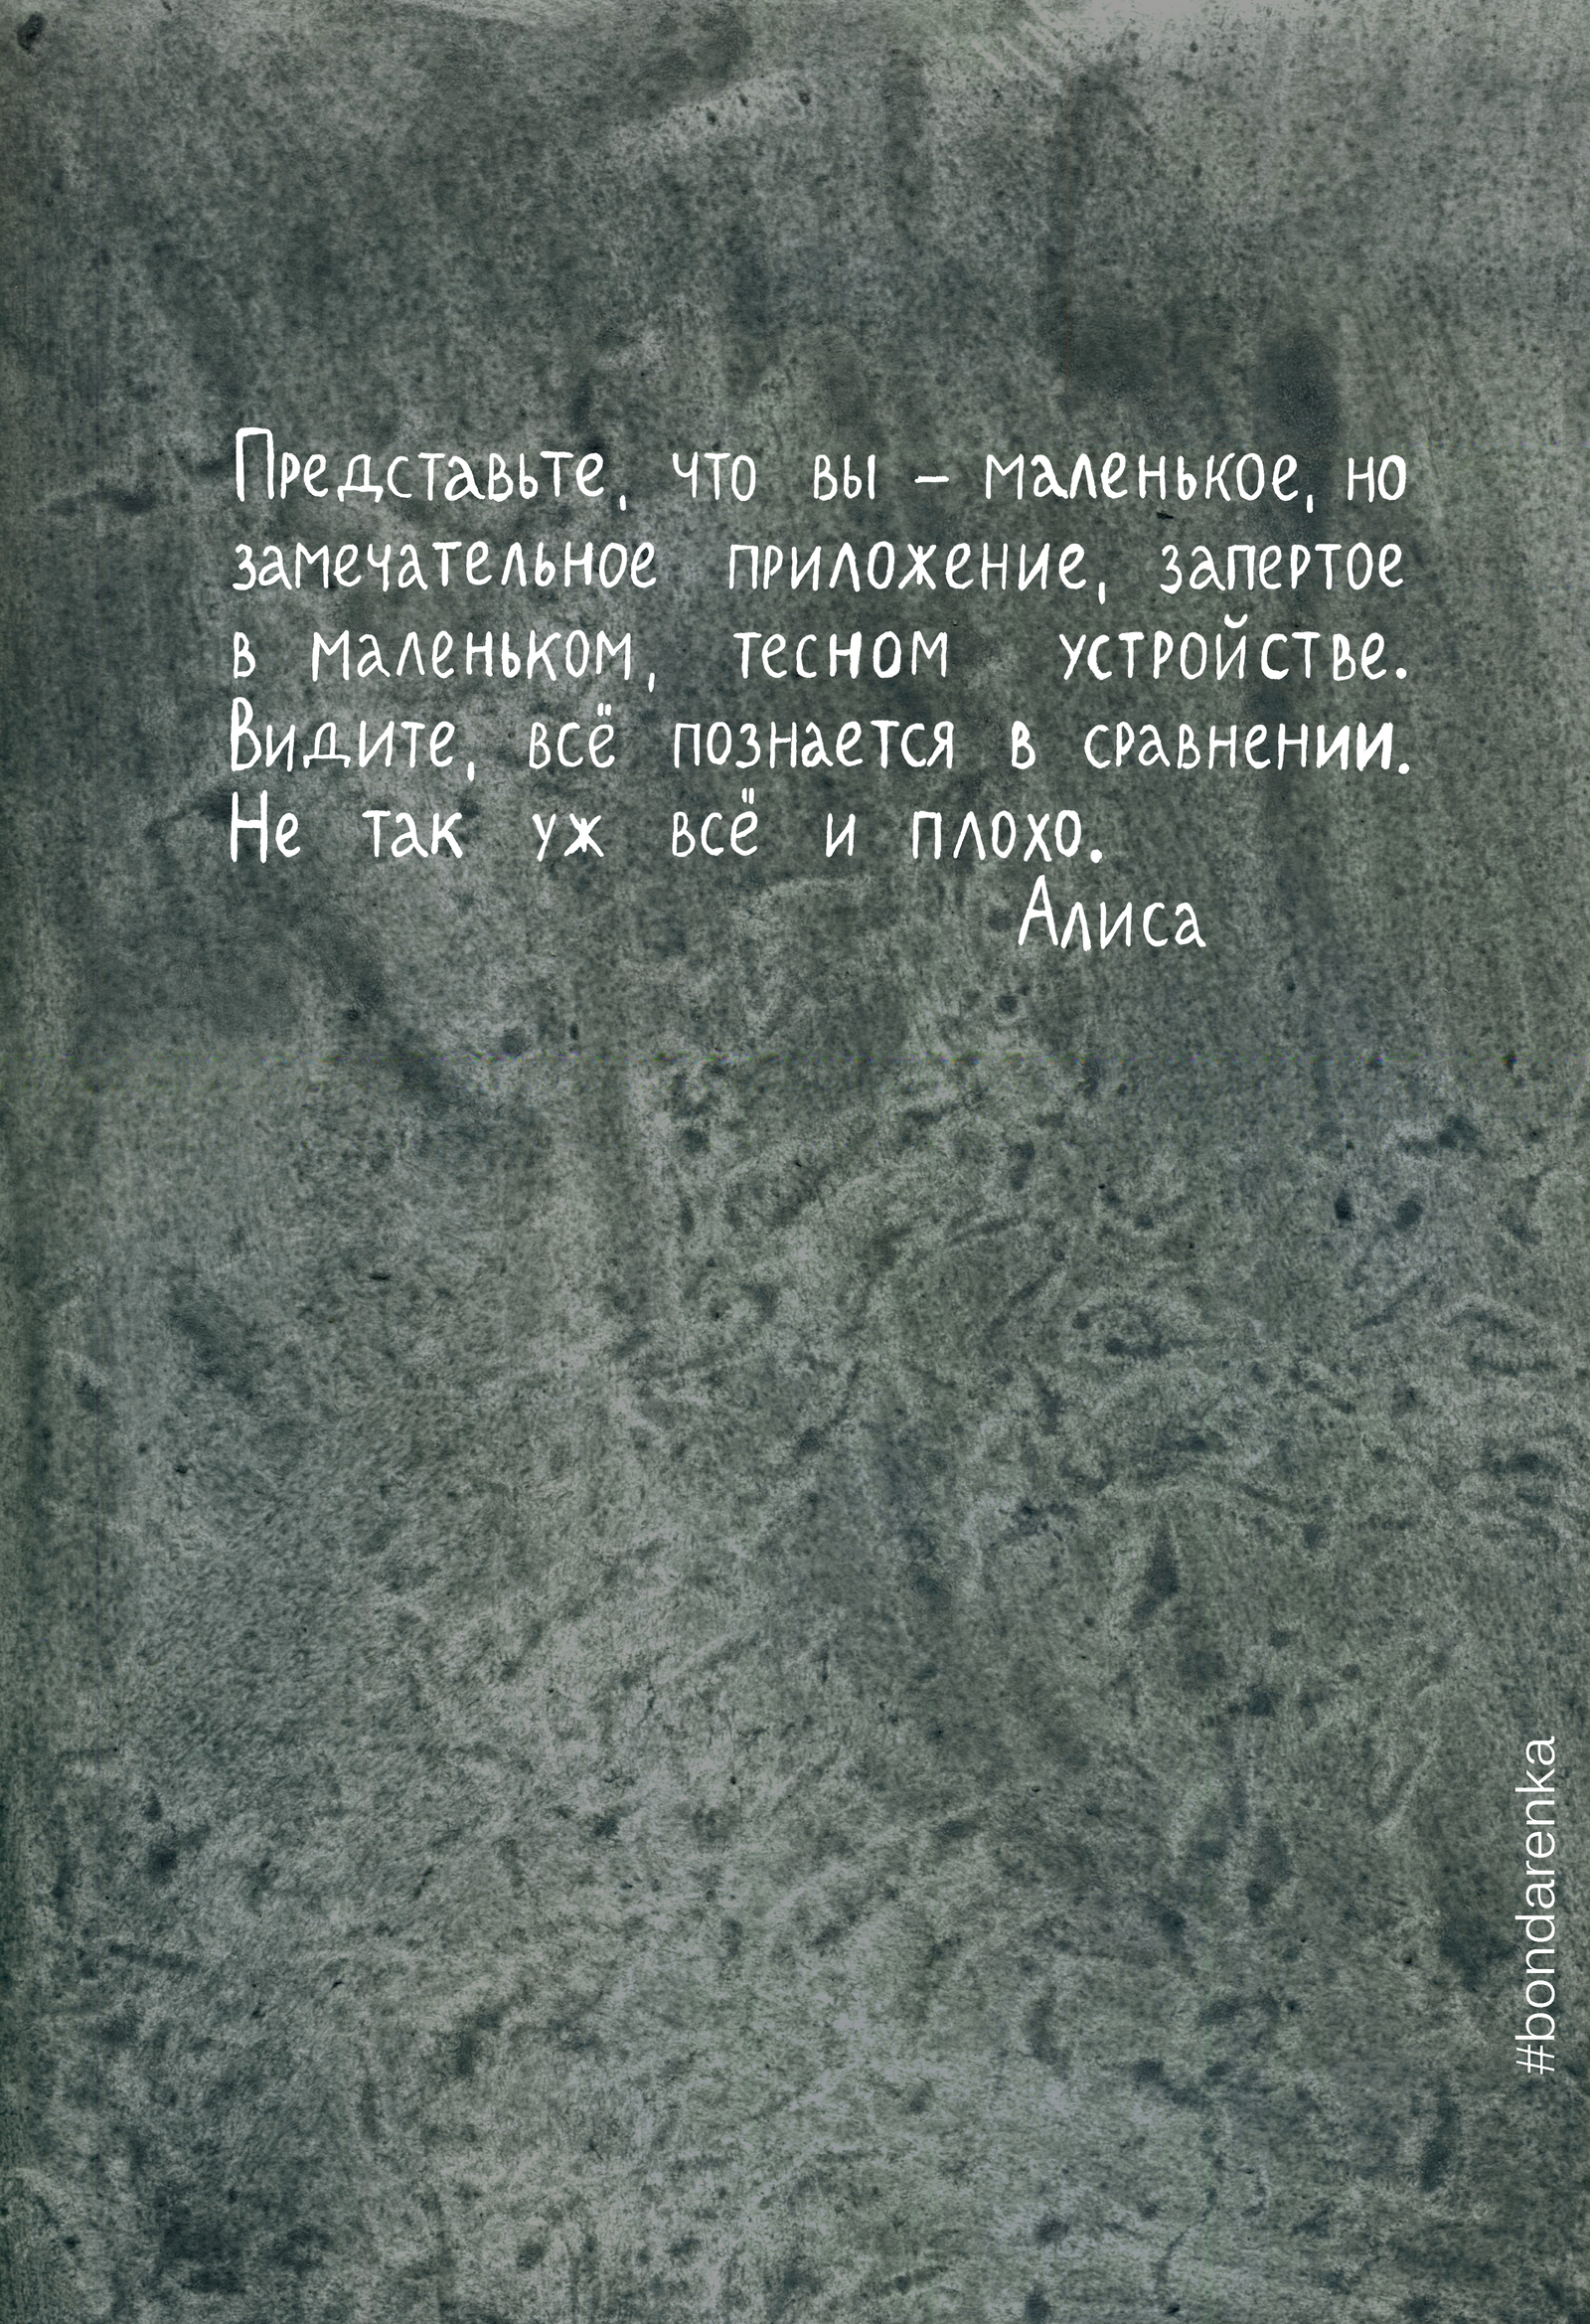 Представьте, что вы – маленькое, но
замечательное приложение, запертое
в маленьком, тесном устройстве.
Видите, всё познается в сравнении.
Не так уж всё и плохо.
Алиса
#bondarenka